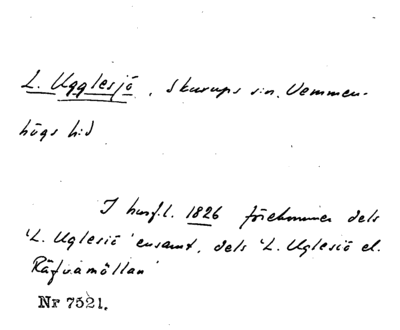 L. Ugglesjö, Skurups sn, Vemmen-
högs hd
I husf.l. 1826 förekommer dels
'L. Uglesiö' ensamt, dels 'L. Uglesiö el.
Räfvamöllan'
Nr 7521.